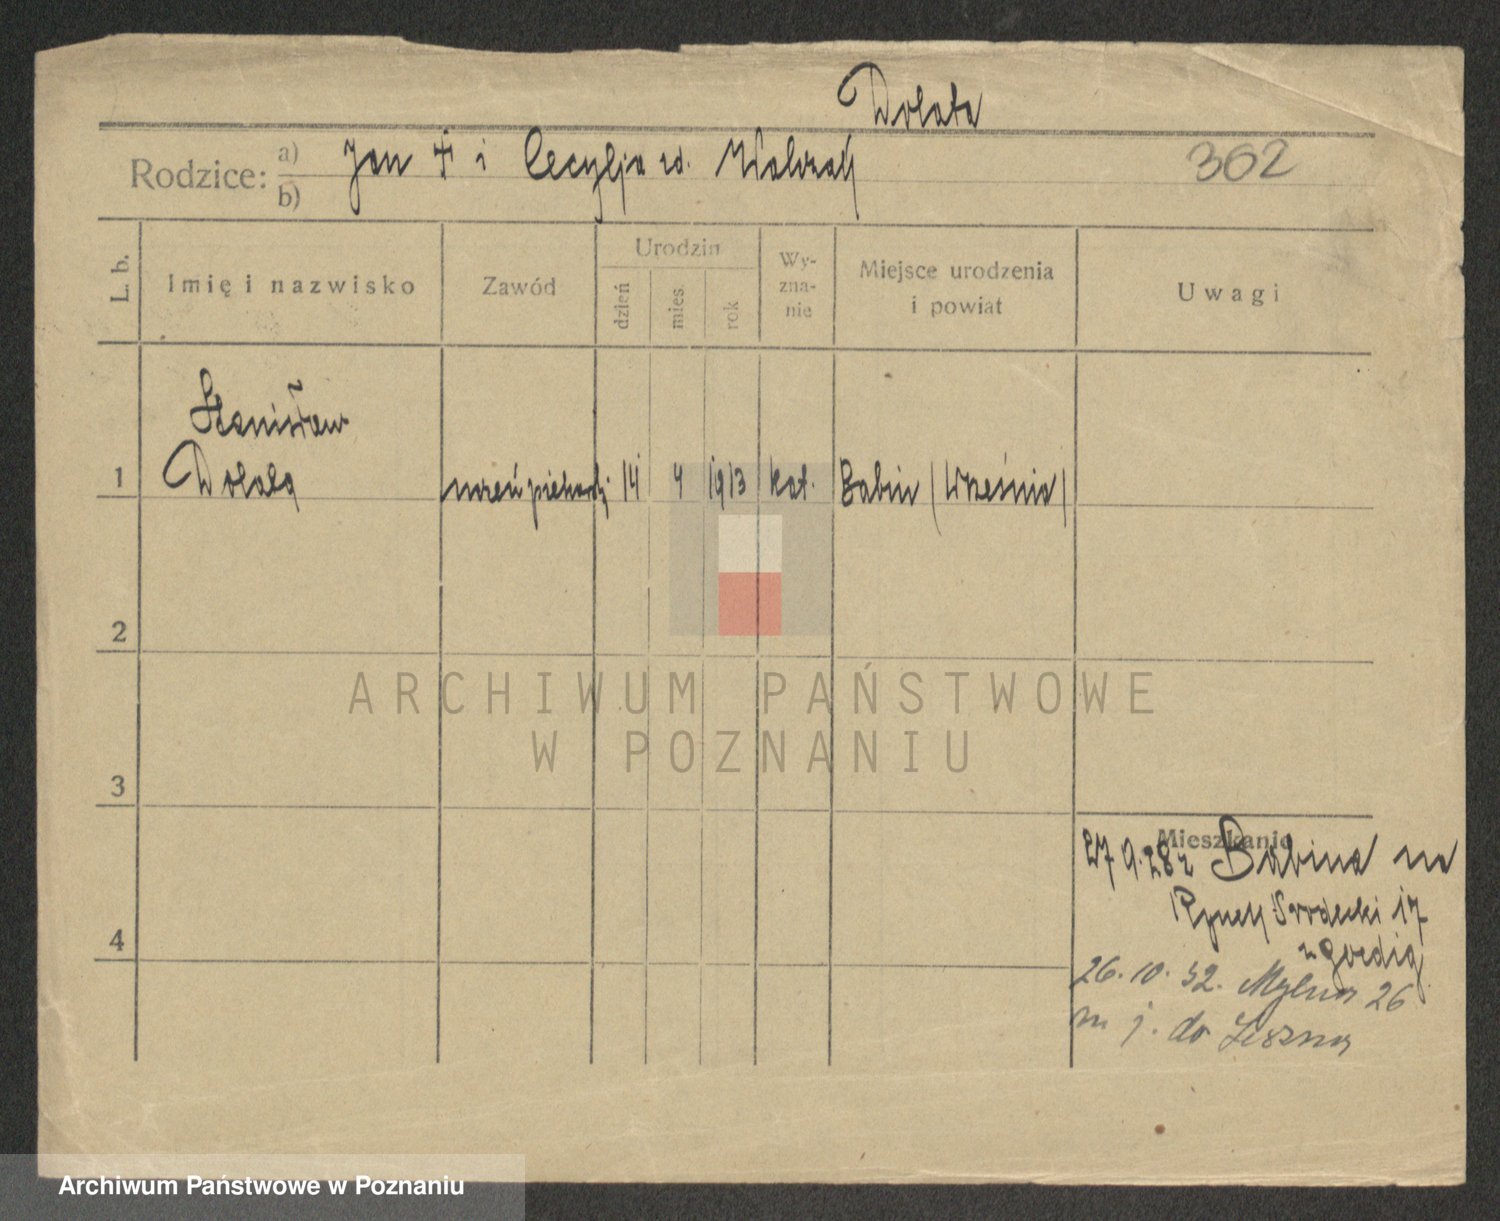 Dolata
Rodzice: a) b) Jan † i Cecylja zd. Walczak
362
L. b.
Imię i nazwisko
Zawód
Urodzin
dzień
mies.
rok
Wy-
zna-
nie
Miejsce urodzenia
i powiat
Uwagi
Stanisław
1 Dolata uczeń piekarz. 14 4 1913 kat. Babin (Września)
2
3
4
ARCHIWUM PAŃSTWOWE
W POZNANIU
Mieszkanie
27 9.28 z Babina na
Rynek Śródecki 17
26.10.32. Mylna 26
m j. do Leszna
Archiwum Państwowe w Poznaniu